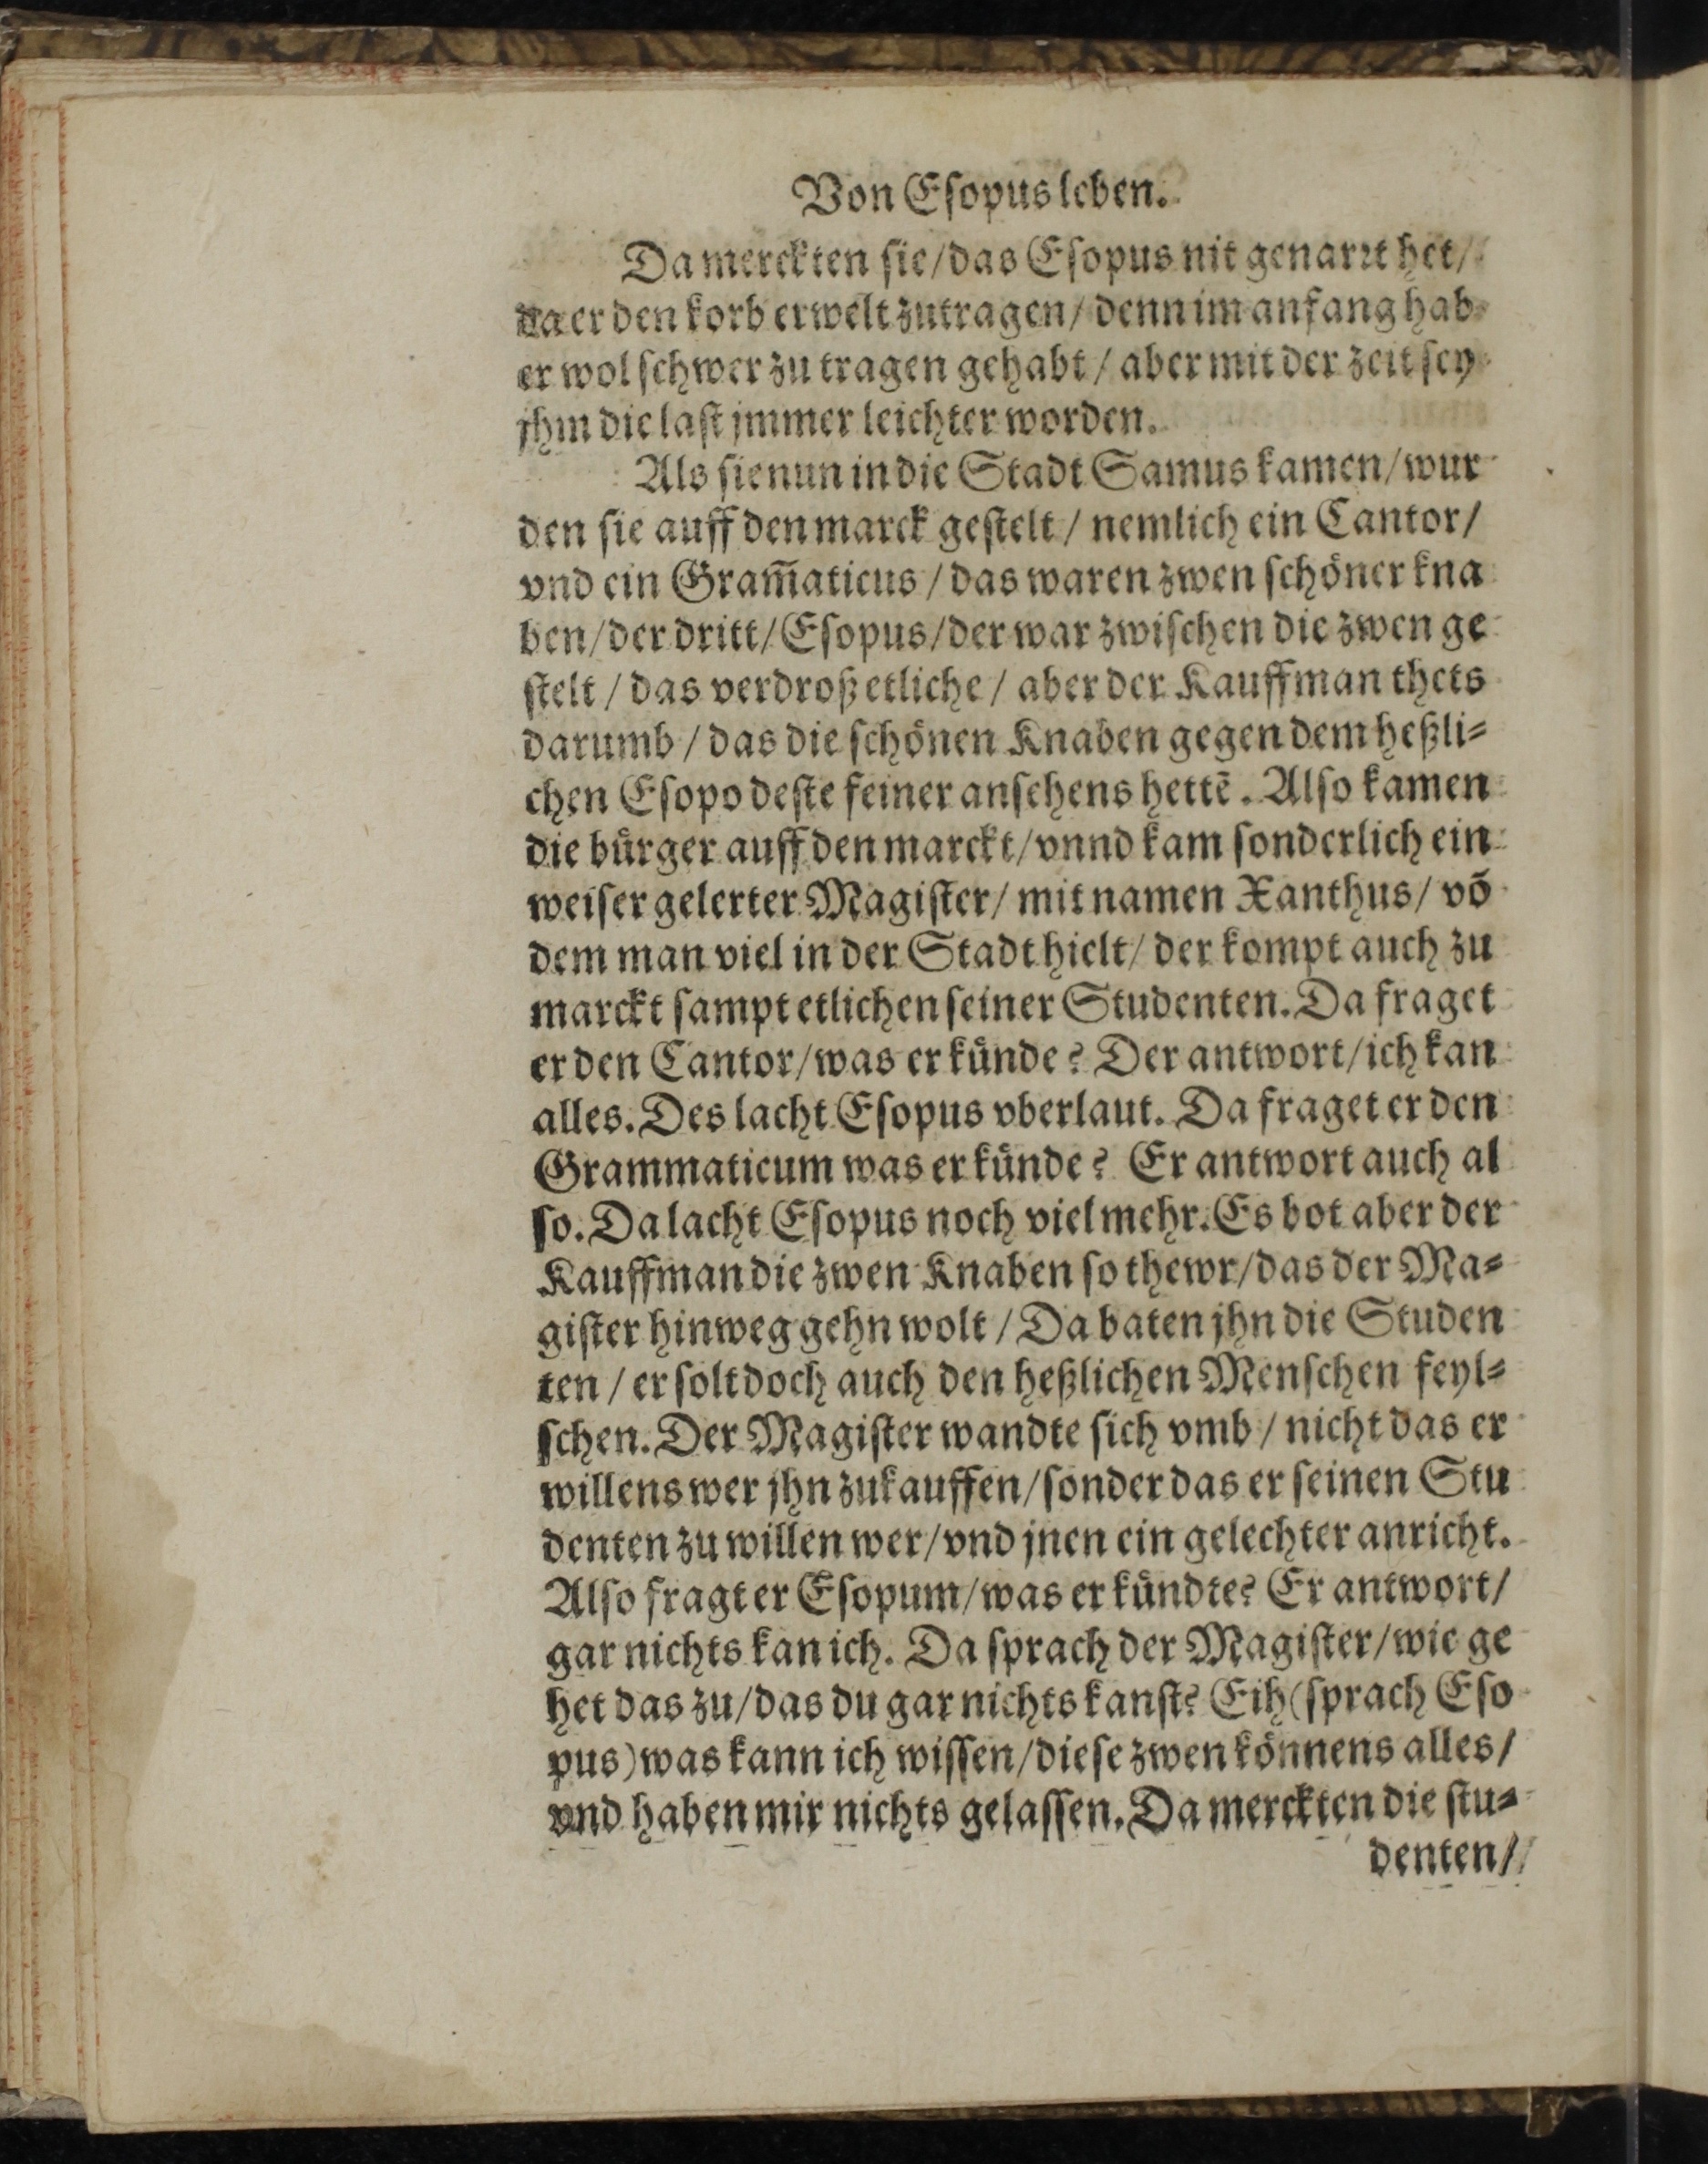 Von Esopus leben.
Da merckten sie/ das Esopus nit genarrt het/
da er den korb erwelt zutragen/ denn im anfang hab
er wol schwer zu tragen gehabt/ aber mit der zeit sey
jhm die last jmmer leichter worden.
Als sie nun in die Stadt Samus kamen/ wur
den sie auff den marck gestelt/ nemlich ein Cantor/
vnd ein Gram̃aticus/ das waren zwen schöner kna
ben/ der dritt/ Esopus/ der war zwischen die zwen ge
stelt/ das verdroß etliche/ aber der Kauffman thets
darumb/ das die schönen Knaben gegen dem heßli⸗
chen Esopo deste feiner ansehens hettē. Also kamen
die bürger auff den marckt/ vnnd kam sonderlich ein
weiser gelerter Magister/ mit namen Xanthus/ võ
dem man viel in der Stadt hielt/ der kompt auch zu
marckt sampt etlichen seiner Studenten. Da fraget
er den Cantor/ was er künde? Der antwort/ ich kan
alles. Des lacht Esopus vberlaut. Da fraget er den
Grammaticum was er künde? Er antwort auch al
so. Da lacht Esopus noch viel mehr. Es bot aber der
Kauffman die zwen Knaben so thewr/ das der Ma⸗
gister hinweg gehn wolt/ Da baten jhn die Studen
ten/ er solt doch auch den heßlichen Menschen feyl⸗
schen. Der Magister wandte sich vmb/ nicht das er
willens wer jhn zukauffen/ sonder das er seinen Stu
denten zu willen wer/ vnd jnen ein gelechter anricht.
Also fragt er Esopum/ was er kündte? Er antwort/
gar nichts kan ich. Da sprach der Magister/ wie ge
het das zu/ das du gar nichts kanst? Eih (sprach Eso
pus) was kann ich wissen/ diese zwen könnens alles/
vnd haben mir nichts gelassen. Da merckten die stu⸗
denten/